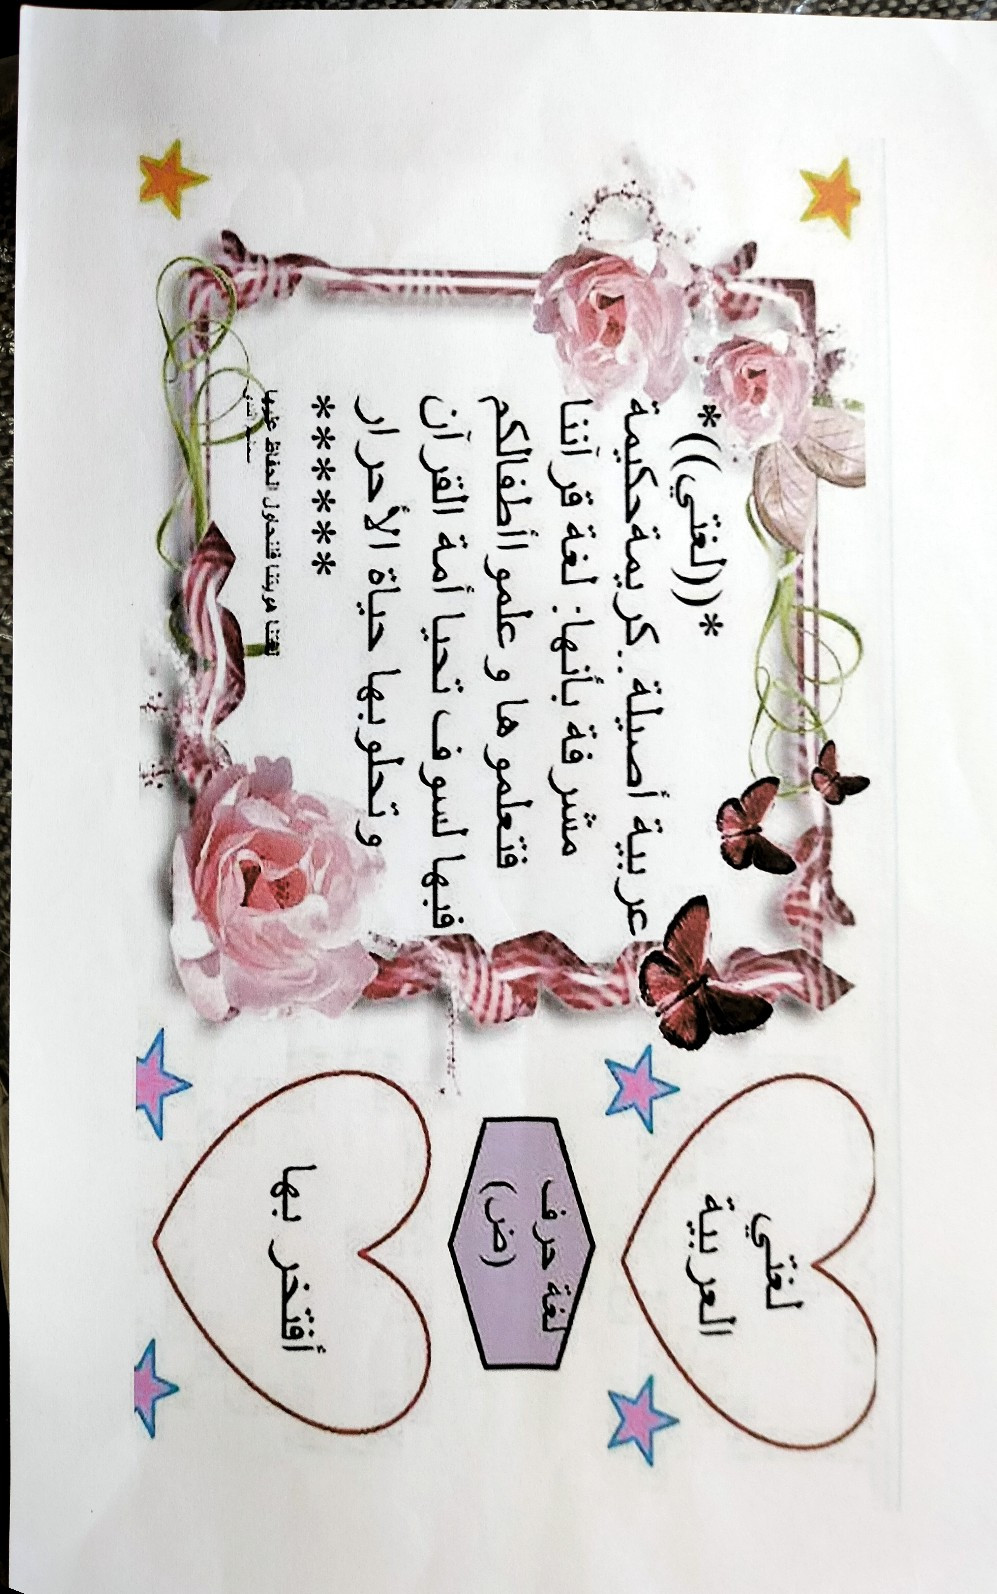 *((لغتي))*
عربية أصيلة ..كريمة حكيمة
مشرفة بأنها: لغة قرآننا
فتعلموها وعلموا أطفالكم
فبها لسوف تحيا أمة القرآن
وتحلو بها حياة الأحرار
******
لغتنا هويتنا فلنحاول الحفاظ عليها
لغتي
العربية
لغة حرف
(ض)
أفتخر بها